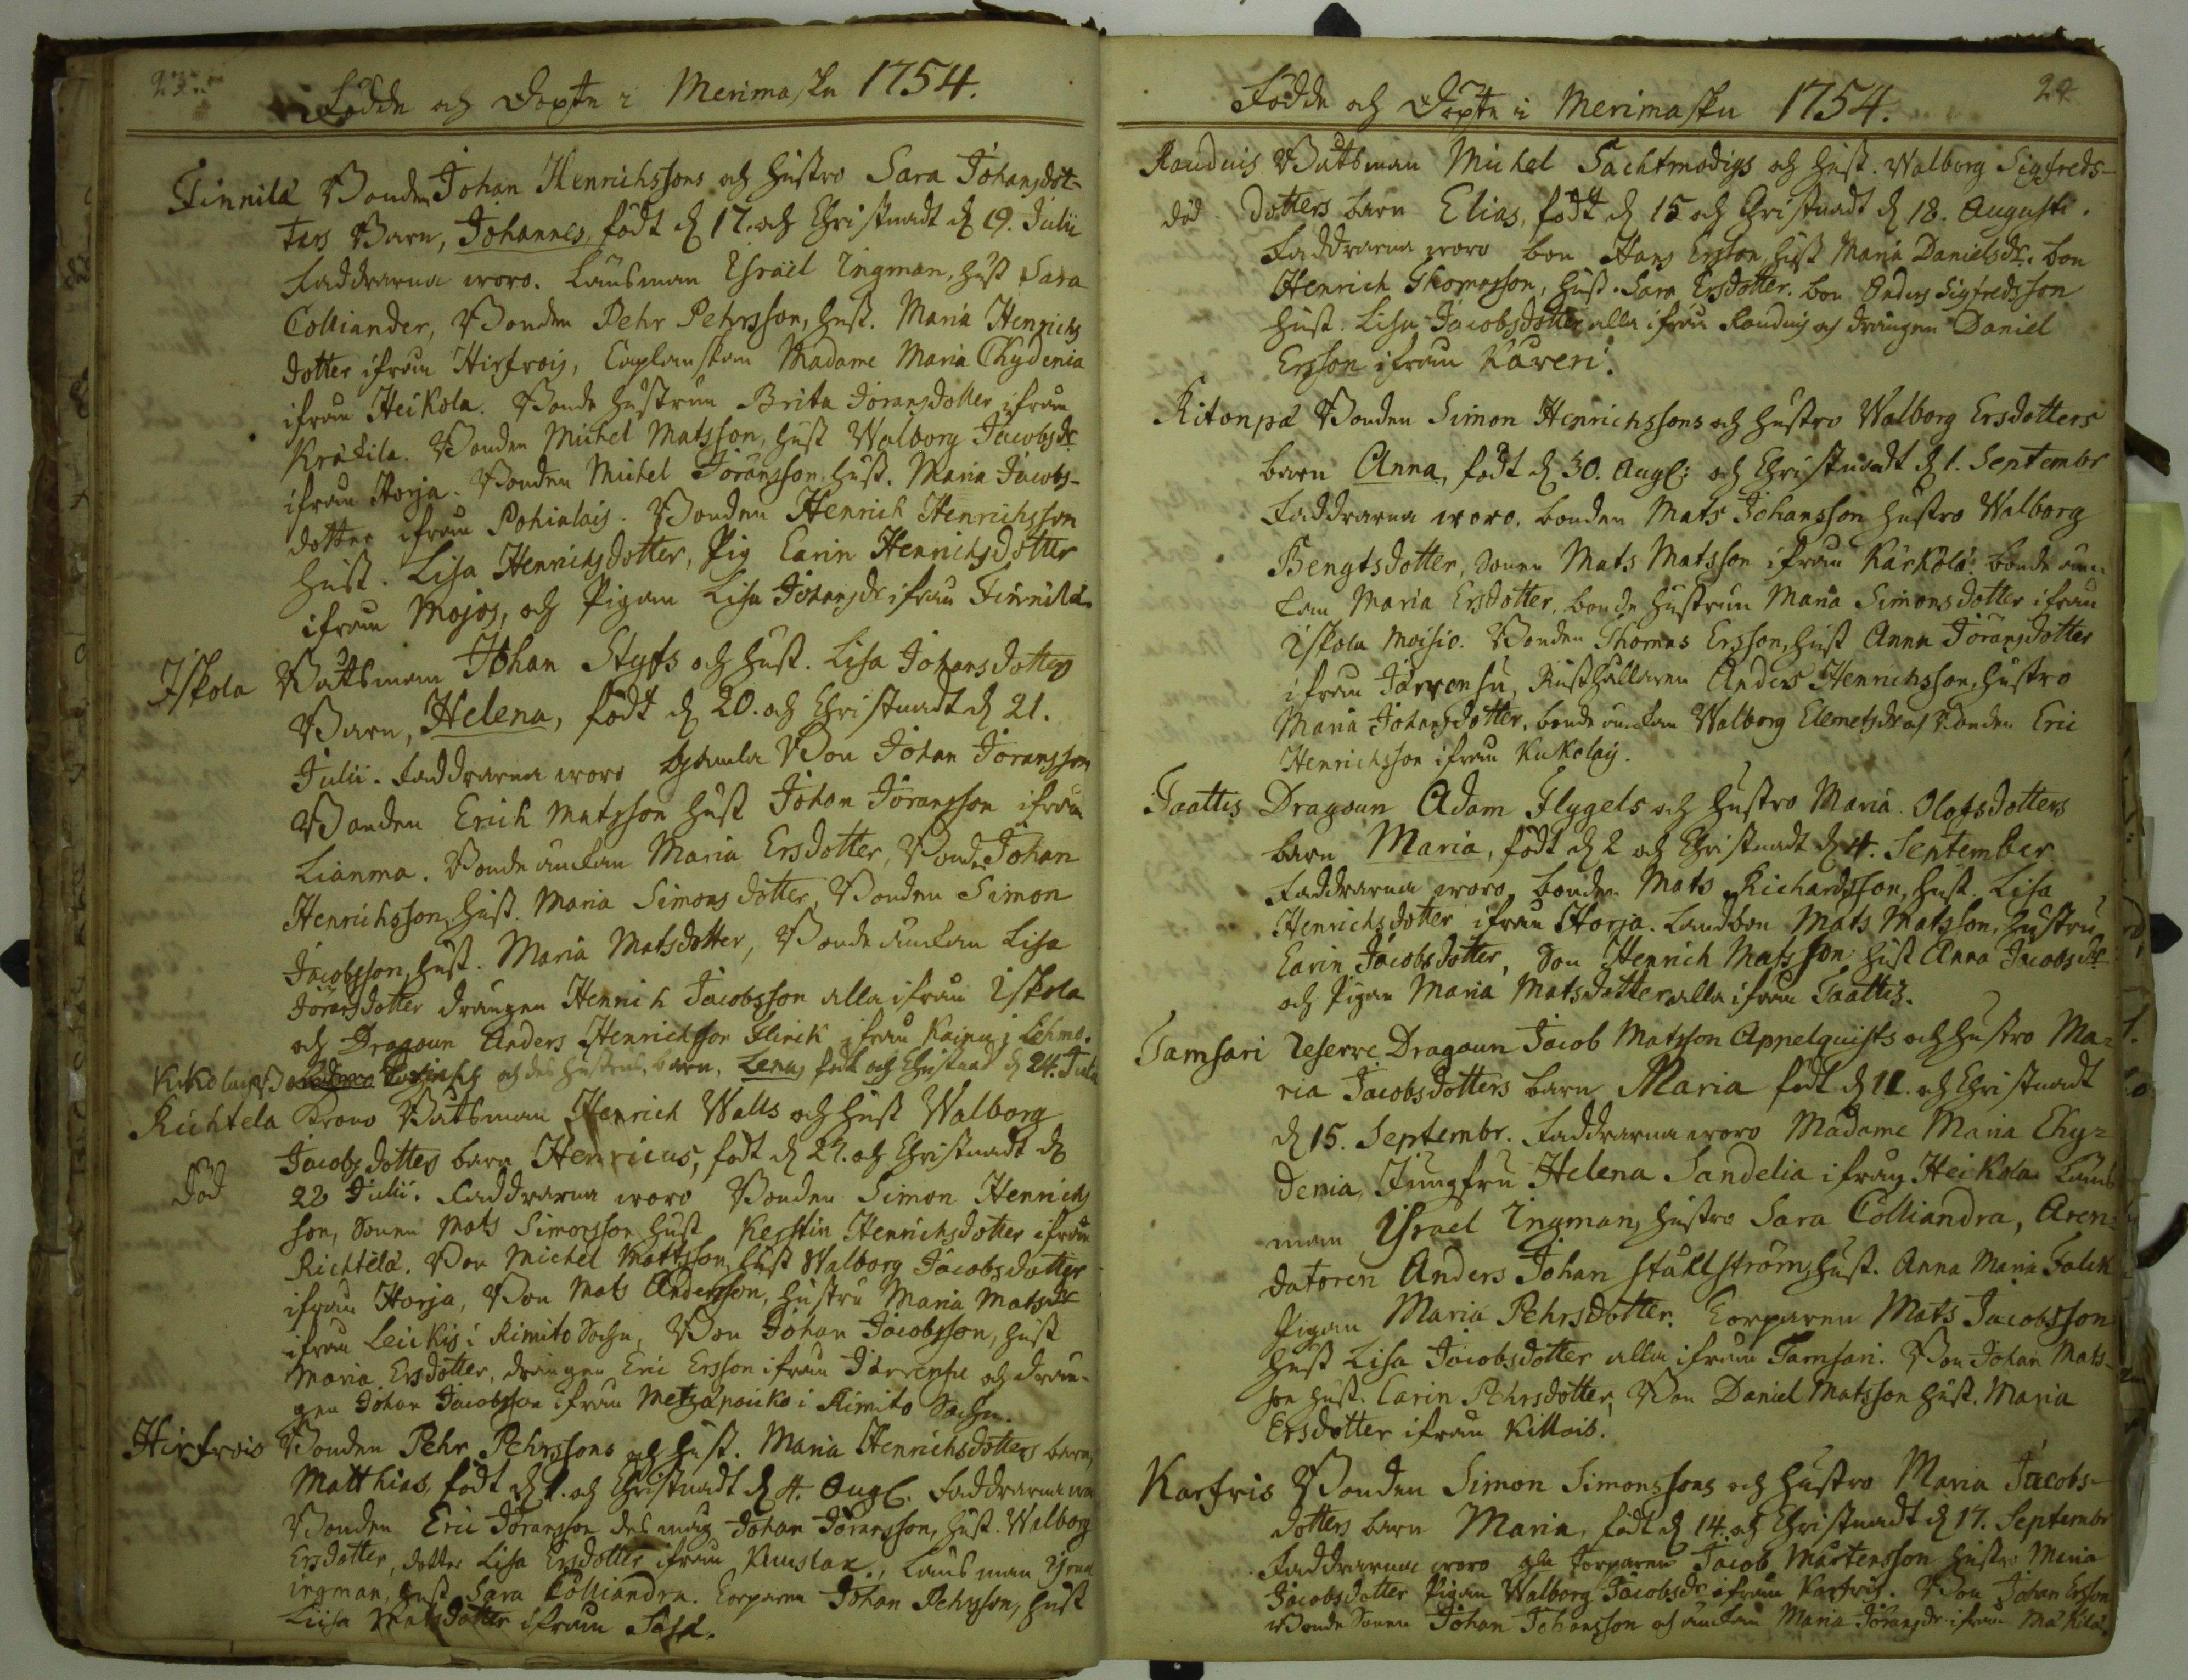 23
Födde och Döpte i Merimasku 1754.
Finnilä Bonden Johan Henrichssons och hustro Sara Johansdot-
ters Barn, Johannes, födt d 17. och Christnadt d 19. Julii
Faddrarna woro. Länsman Israël Ingman, hust Sara
Colliander, Bonden Pehr Pehrsson, hust. Maria Henrichs
dotter ifrån Hirfrois, Caplanskan Madame Maria Chydenia
ifrån Heikola. Bonde hustrun Brita Jöransdotter ifrån
Kräkila. Bonden Michel Matsson, hust Walborg Jacobsdr
ifrån Horja. Bonden Michel Jöransson, hust. Maria Jacobs-
dotter ifrån Pohialais. Bonden Henrich Henrichsson
hust. Lisa Henrichsdotter, Pig Carin Henrichsdotter
ifrån Mojos, och Pigan Lisa Johansdr ifrån Finnilä.
Iskola Båtsman Johan Styfs och hust. Lisa Johansdotters
Barn, Helena, födt d 20. och Christnadt d 21.
Julii. Faddrarna woro Gamla Bon Johan Jöransson
Bonden Erich Matsson hust Johan Jöransson ifrån
Lianma. Bonde änckan Maria Ersdotter, Bonden Johan
Henrichsson, hust. Maria Simonsdotter, Bonden Simon
Jacobsson, hust. Maria Matsdotter, Bonde änckan Lisa
Jöransdotter drängen Henrich Jacobsson alla ifrån Iskola
och Dragoun Anders Henrichsson Flinck ifrån Kainu i Lehmo.
Kukolais och des hustrus barn, Lena, födt och Christnad d 24. Julii
Richtela Krono Båtsman Henrich Walls och hust Walborg
Jacobsdotters barn Henricus, födt d 21. och Christnadt d
Död 22 Julii. Faddrarna woro Bonden Simon Henrichs
son, Sonen Mats Simonsson hust Kerstin Henrichsdotter ifrån
Richtelä. Bon Michel Mattsson, hust Walborg Jacobsdotter
ifrån Horja, Bon Mats Andersson, hustru Maria Matsdr
ifrån Leikkis i Rimito Sochn, Bon Johan Jacobsson, hust
Maria Ersdotter, drängen Eric Ersson ifrån Järvensu och drän-
gen Johan Jacobsson ifrån Metzäpouko i Rimito Sochn.
Hirfrois Bonden Pehr Pehrssons och hust. Maria Henrichsdotters barn,
Matthias, födt d 1. och Christnadt d 4. Aug. Faddrarna wor
Bonden Eric Jöransson des måg Johan Jöransson, hust. Walborg
Ersdotter, dotter Lisa Ersdotter ifrån Kuustax., Länsman Israel
Ingman, hust Sara Colliandra. Torparen Johan Pehrsson, hust
Liisa Matsdotter ifrån
24
Födde och Döpte i Merimasku 1754.
Rauduis Båtsman Michel Sachtmodigs och hust. Walborg Sigfreds-
död. dotters barn Elias, födt d 15 och Christnadt d 18. Augusti.
Faddrarna woro bon Hans Ersson, hust Maria Danielsdr. bon
Henrich Thomasson, hust. Sara Ersdotter. bon Anders Sigfredsson
hust. Lisa Jacobsdotter alla ifrån Rauduis och drängen Daniel
Ersson ifrån Kaveri.
Ritonpä Bonden Simon Henrichssons och hustro Walborg Ersdotters
barn Anna, födt d 30. Aug: och Christnadt d 1. Septembr
Faddrarna woro. bonden Mats Johansson hustro Walborg
Bengtsdotter, Sonen Mats Matsson ifrån Kärkölä. bonde än-
kan Maria Ersdotter. bonde hustrun Maria Simonsdotter ifrån
Iskola Moisio. Bonden Thomas Ersson, hust Anna Jöransdotter
ifrån Järvensu, Rusthållaren Anders Henrichsson, hustro
Maria Johansdotter, bonde änckan Walborg Clemetsdr och Bonden Eric
Henrichsson ifrån Kukolais.
Taattis Dragoun Adam Flygels och hustro Maria Olofsdotters
barn Maria, födt d 2 och Christnadt d 4. September
Faddrarna woro. bonden Mats Richardsson, hust. Lisa
Henrichsdotter ifrån Horja. Landbon Mats Matsson, hustru
Carin Jacobsdotter, Son Henrich Matsson hust Anna Jacobsdr
och Pigan Maria Matsdotter alla ifrån Taattis.
Tamsari Reserve Dragoun Jacob Matsson Appelquists och hustro Ma-
ria Jacobsdotters barn Maria födt d 11. och Christnadt
d 15. Septembr. Faddrarna woro Madame Maria Chy-
denia, Jungfru Helena Sandelia ifrån Heikola Läns
man Israel Ingman, hustro Sara Colliandra, Aren-
datoren Anders Johan Stählström, hust. Anna Maria Falck
Pigan Maria Pehrsdotter. Torparen Mats Jacobsson
hust Lisa Jacobsdotter alla ifrån Tamsari. Bon Johan Mats-
son hust. Carin Pehrsdotter, Bon Daniel Matsson hust. Maria
Ersdotter ifrån Killais.
Karfris Bonden Simon Simonssons och hustro Maria Jacobs-
dotters barn Maria, födt d 14. och Christnadt d 17. Septembr
Faddrarna woro gla Torparen Jacob Mårtensson hustro Maria
Jacobsdotter Pigan Walborg Jacobsdr ifrån Karfris. Bon Johan Ersson
Bonde Sonen Johan Johansson och änckan Maria Jöransdr ifrån Mäkilä,